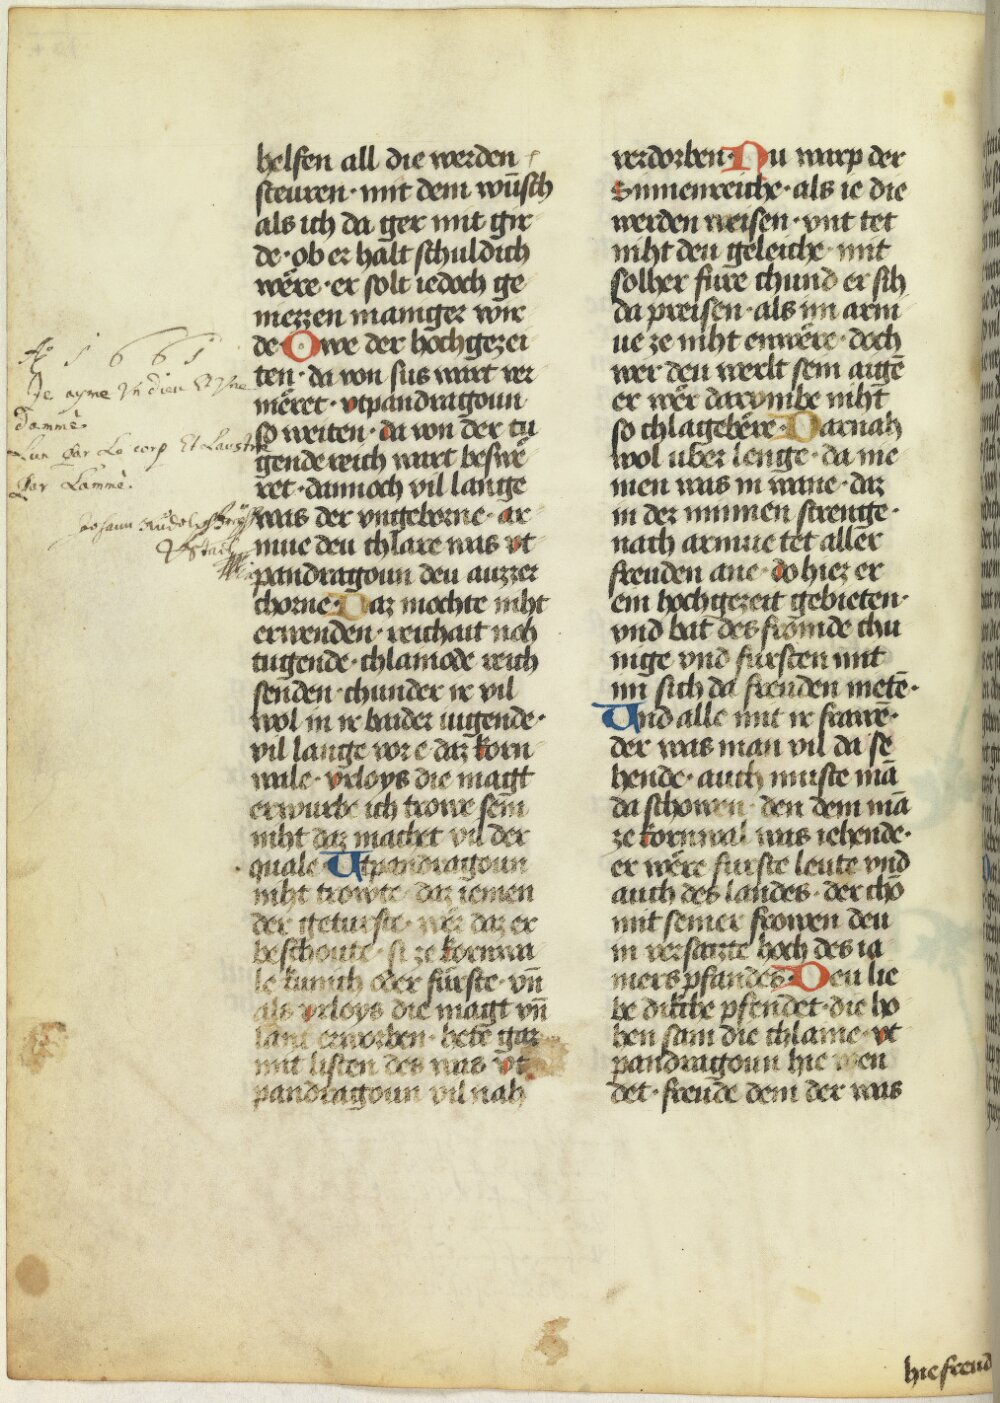 helfen all die werden
steuren · mit dem wūsch
als ich da ger mit gir
de · ob er halt schuldich
wêre · er solt iedoch ge
niezzen maniger wir
de Owe der hochgezei
ten · da von sus wart ver
mêret · vtpandragoun
so weiten · da von der tu
gende reich wart beswê
ret · dannoch vil lange
was der vngeborne · ar
mue deu chlare was vt
pandragoun deu auzzer
chorne · Daz mochte niht
erwenden · reichait noh
tugende · chlainode reich
senden · chunder ir vil
wol in ir baider iugende ·
vil lange vor e daz korn
wale · vrloys die magt
erwurbe ich trowe sem
niht daz machet vil der
quale Utpandragoun
niht trowte · daz iemen
der geturste · wêr daz er
beschoute · si ze kornwa
le kunich oder fürste · vn̄
als vrloys die magt vn̄
lant erworben · hete gar
mit listen des was vt
pandragoun vil nah
verdorben · Nu warp der
Sinnenreiche · als ie die
werden weisen · vnt tet
niht den geleiche · mit
solher fure chund er sih
da preisen · als im arni
ue ze niht enwêre · doch
wer deu werlt sein aigē
er wêr darvmbe niht
so chlagebêre · Darnah
wol uber lenge · da nie
men was in wane · daz
in der minnen strenge ·
nach arniue tet aller
freuden ane · do hiez er
ein hochgezeit gebieten ·
vnd bat des frömde chu
nige vnd fursten mit
im sich da freuden nietē ·
Und alle mit ir frawē ·
der was man vil da se
hende · auch muste mā
da schowen · den dem mā
ze kornwal was iehende ·
er wêre furste leute vnd
auch des landes · der chō
mit seiner frowen deu
in versatzte hoch des ia
mers pfandes · Deu lie
be dikche pfendet · die ho
hen sam die chlaine · vt
pandragoun hie wen
det · freude dem der was
hie freud
Aº 1661
Je ayme Vn dieu Et Vne
Damme.
Lun par Le corp Et Lautre
par Lamme.
Johann Rudolf